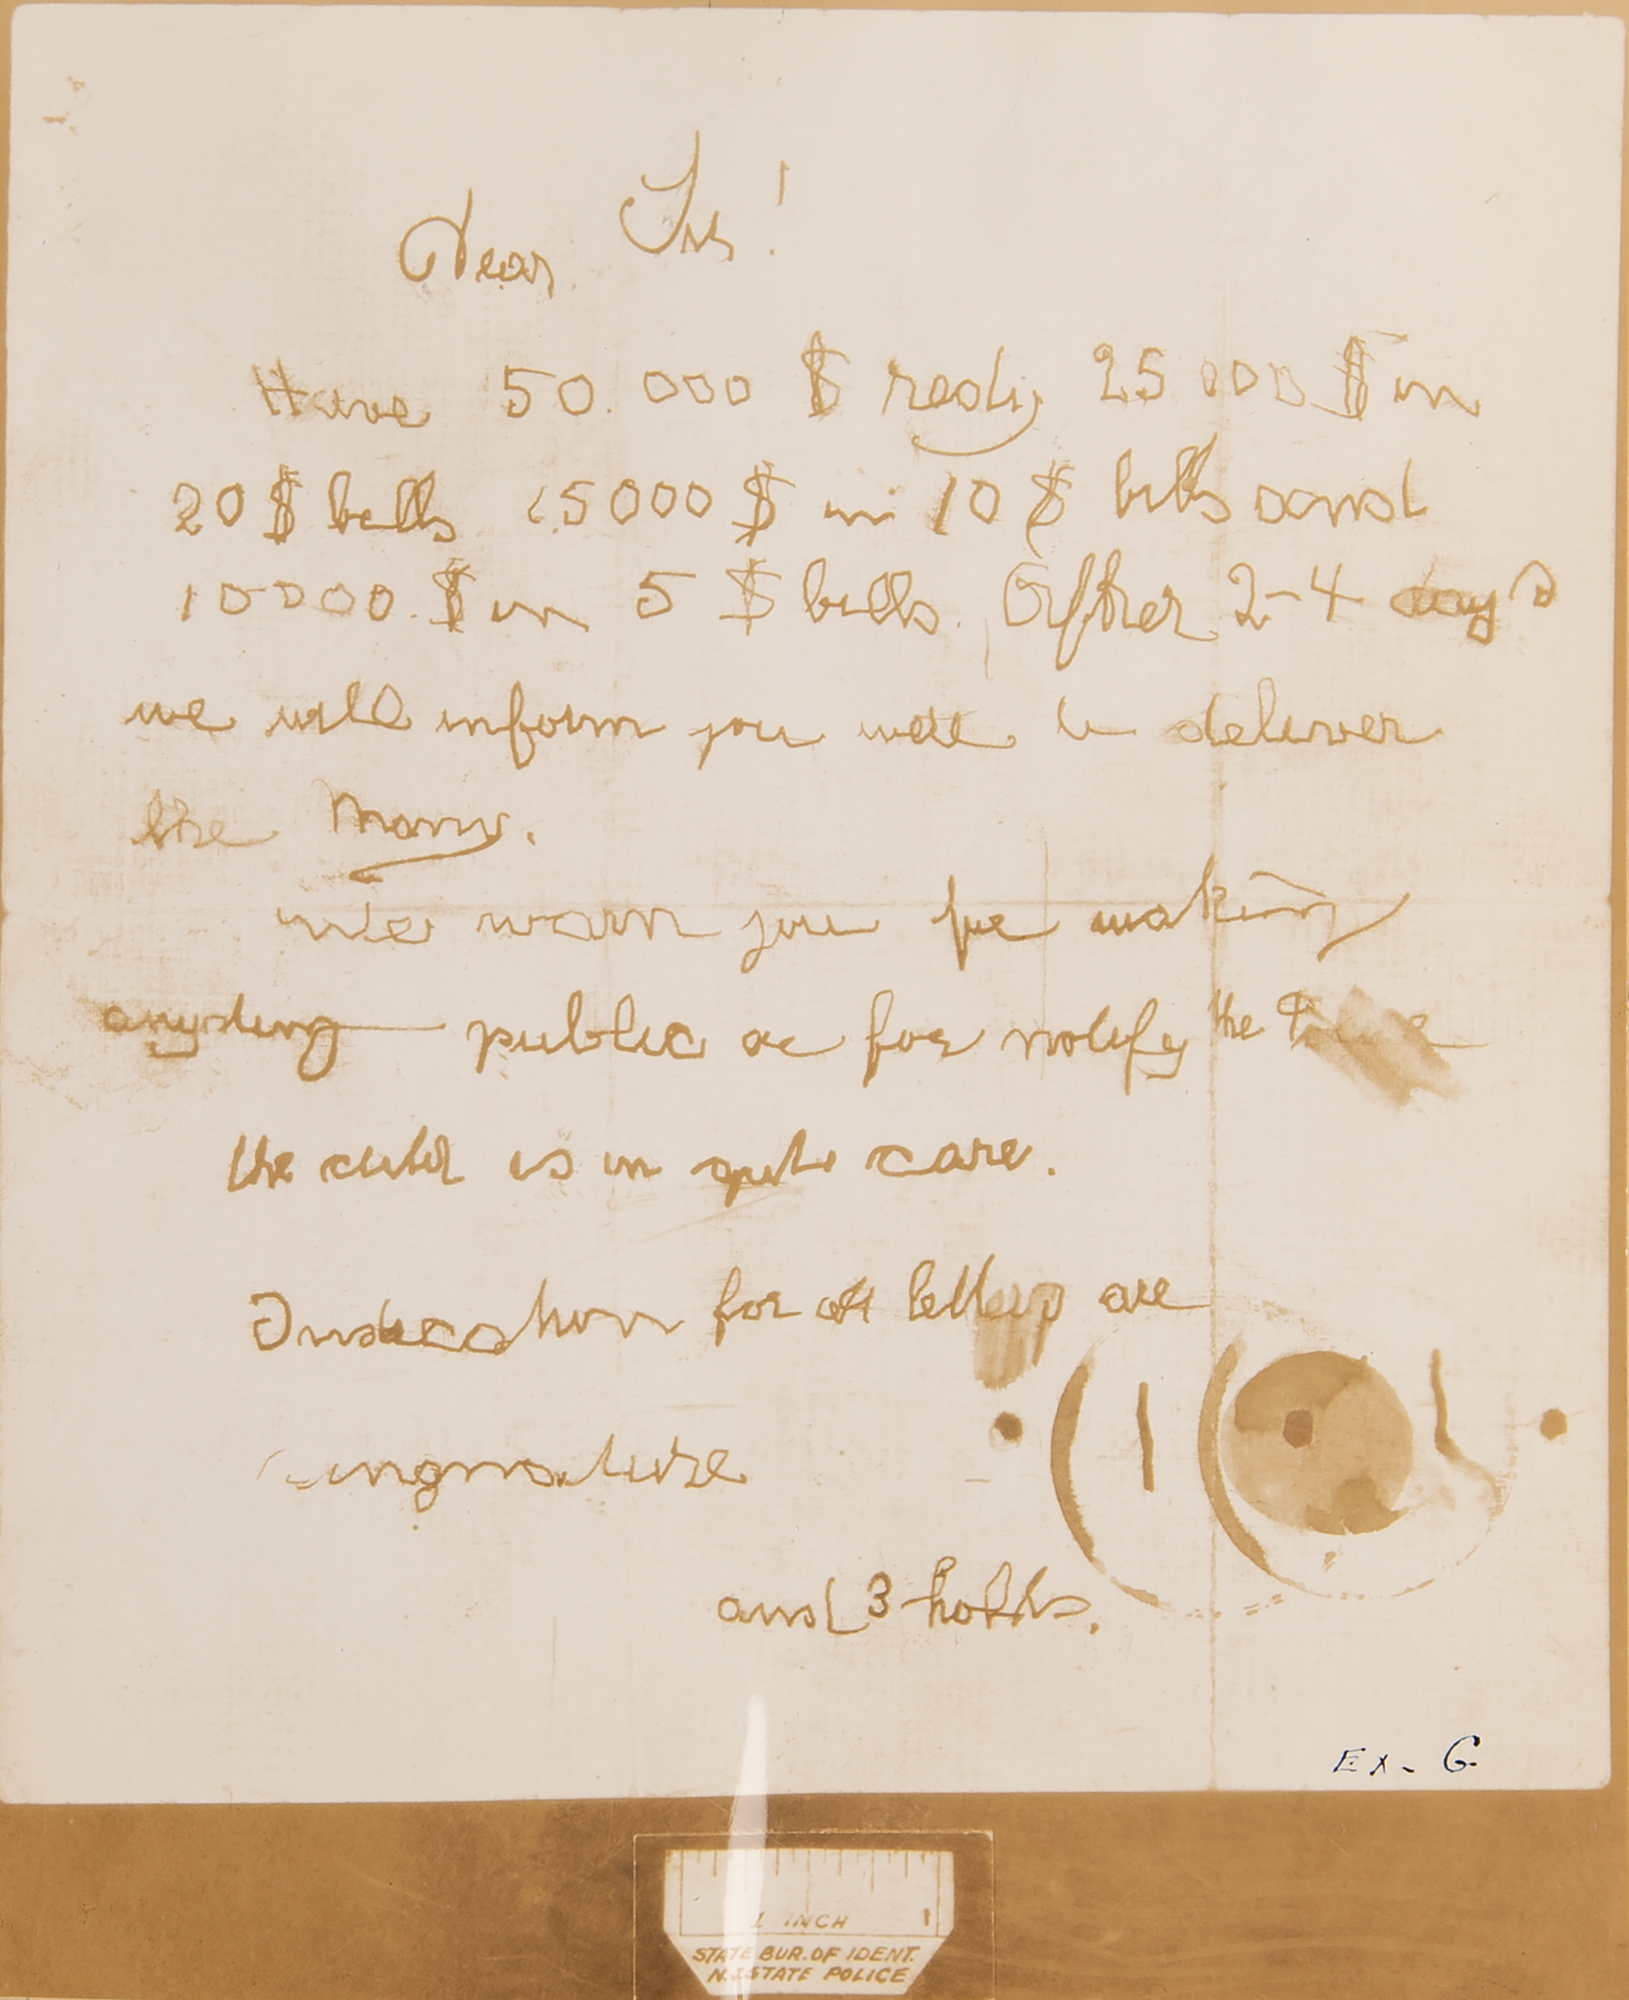 Dear Sir!
Have 50.000 $ redy 25000 $ in
20 $ bills 15000 $ in 10 $ bills and
10000 $ in 5 $ bills. After 2-4 days
we will inform you were to deliver
the Mony.
We warn you for making
anyding public or for notify the Police
the child is in gute care.
Indication for all letters are
singnature
and 3 holds.
Ex-G
1 INCH
STATE BUR. OF IDENT.
N.J. STATE POLICE